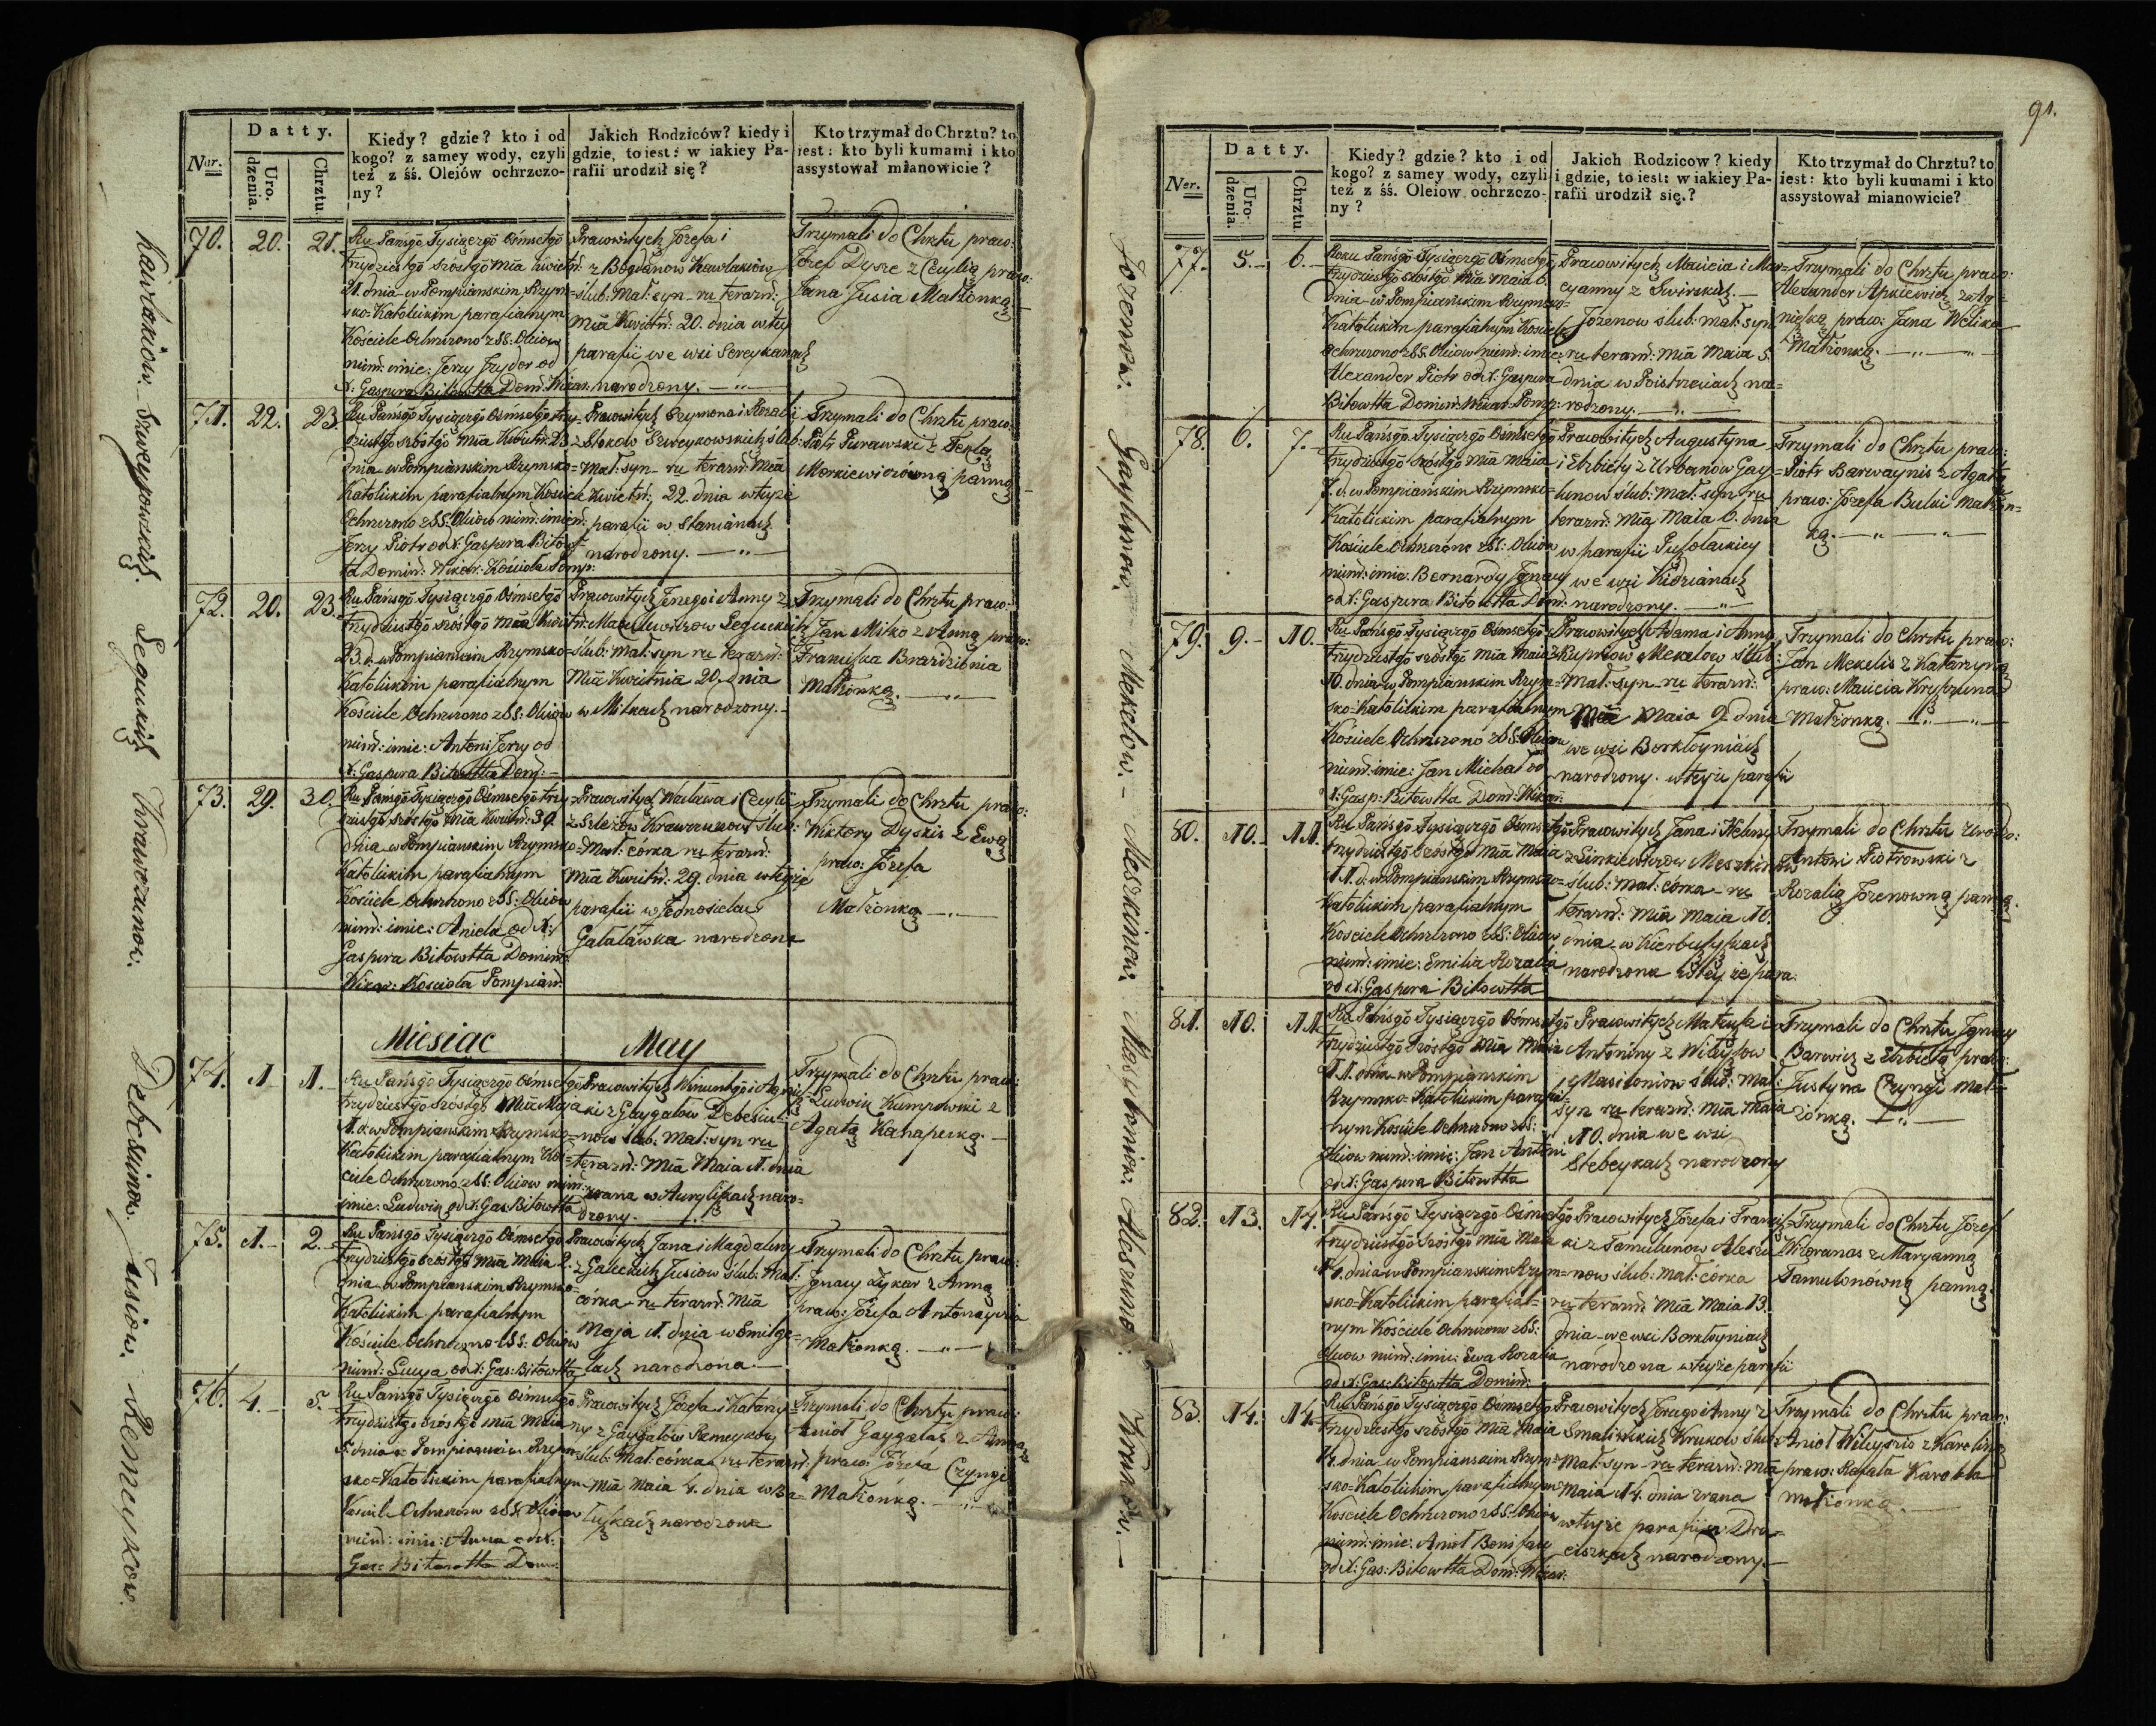 91.
Datty.
Ner.
Uro.
dzenia.
Chrztu
Kiedy? gdzie? kto i od
kogo? z samey wody, czyli
też z śś. Oleiów ochrzczo-
ny?
Jakich Rodziców? kiedy i
gdzie, to iest: w iakiey Pa-
rafii urodził się?
Kto trzymał do Chrztu? to
iest: kto byli kumami i kto
assystował mianowicie?
Kawlakiow. Szweykowskich. Leguckich. Krawczunow. Debessinow. Jusiow. Remeykow.
70. 20. 21.
Ru Pańsgō Tysiącrgō Ośmsetgō
trzydziestgō szóstgō Mīa Kwietń:
21. dnia w Pompianskim Rzym=
sko-Katolickim parafialnym
Kościele Ochrzczono z SS: Oleiow
niem̄: imie: Jerzy Jzydor od
X: Gaspera Bitowtta Dom̄: Wikar:
Pracowitych Jozefa i
z Bogdanow Kawlakiow
ślub: Mał: syn ru terazń:
Mīa Kwietń: 20. dnia w tey
parafii we wsi Sereykanach
narodzony.
Trzymali do Chrztu praco:
Jozef Dysze z Cecylią praco:
Jana Jusia Małżonką
71. 22. 23.
Ru Pańsgō Tysiącrgō Ośmsetgō trzy=
dziestgō szóstgō Mīa Kwietń: 23
dnia w Pompianskim Rzymsko=
Katolickim parafialnym Kościele
Ochrzczono z SS: Oleiow niem̄: imień:
Jerzy Piotr od X: Gaspera Bitowt
ta Domiń: Wikar: Kościoła Pomp:
Pracowitych Szymona i Rozalii
z Stokow Szweykowskich ślub:
Mał: syn ru terazń: Mīa
Kwietń: 22 dnia w teyże
parafii w Staniunach
narodzony.
Trzymali do Chrztu praco:
Piotr Purawski z Teklą
Morkiewiczówną panną
72. 20. 23.
Ru Pańsgō Tysiącrgō Ośmsetgō
trzydziestgō szóstgō Mīa Kwietń:
23. d. w Pompianskim Rzymsko=
Katolickim parafialnym
Kościele Ochrzczono z SS: Oleiow
niem̄: imie: Antoni Jerzy od
X: Gaspera Bitowtta Dom̄:
Pracowitych Jerzego i Anny z
Leguckich
ślub: Mał: syn ru terazń:
Mīa Kwietnia 20. dnia
w Mitkach narodzony.
Trzymali do Chrztu praco:
Jan Mitko z Anną praco:
Franciszka Brazdzibnia
Małżonką.
73. 29. 30.
Ru Pańsgō Tysiącrgō Ośmsetgō trzy=
dziestgō szóstgō Mīa Kwietń: 30.
dnia w Pompianskim Rzymsko=
Katolickim parafialnym
Kościele Ochrzczono z SS: Oleiow
niem̄: imie: Aniela od X:
Gaspera Bitowtta Domiń:
Wikar: Kościoła Pompiań.
Pracowitych Wacława i Cecylii
z Szležow Krawczunow ślub:
Mał: córka ru terazń:
Mīa Kwietń: 29. dnia w teyże
parafii w Jednosielcu
Gałaławka narodzona
Trzymali do Chrztu praco:
Wiktory Dyskis z Ewą
praco: Józefa
Małżonką
Miesiac May
74. 1. 1.
Ru Pańsgō Tysiącrgō Ośmsetgō
trzydziestgō szóstgō Mīa Maja
1. d. w Pompianskim Rzymsko=
Katolickim parafialnym Koś=
ciele Ochrzczono z SS: Oleiow niem̄:
imie: Ludwik od X: Gas: Bitowtta
Pracowitych Wincentgō i Agnisz
ki z Gaygałow Debessi=
now ślub: Mał: syn ru
terazń: Mīa Maia 1. dnia
zrana w Aurylißkach naro=
dzony.
Trzymali do Chrztu praco:
Ludwik Kumpowski z
Agatą Kanaperką.
75. 1. 2.
Ru Pańsgō Tysiącrgō Ośmsetgō
trzydziestgō szóstgō Mīa Maia 2.
dnia w Pompianskim Rzymsko=
Katolickim parafialnym
Kościele Ochrzczono z SS: Oleiow
niem̄: Łucya od X: Gas: Bitowtta
Pracowitych Jana i Magdaleny
z Galeckich Jusiow ślub: Mał:
córka ru terazń: Mīa
Maja 1. dnia w Smilge=
lach narodzona.
Trzymali do Chrztu praco:
Jgnacy Łykar z Anną
praco: Józefa Antonaycia
Małżonką.
76. 4. 5.
Ru Pańsgō Tysiącrgō Ośmsetgō
trzydziestgō szóstgō Mīa Maia
5 dnia w Pompianskim Rzym=
sko=Katolickim parafialnym
Kościele Ochrzczono z SS: Oleiow
niem̄: imie: Anna od X:
Gas: Bitowtta Dom:
Pracowitych Józefa i Katarzy=
ny z Gaygałow Remeykow
ślub: Mał: córka ru terazń:
Mīa Maia 4. dnia w Ba=
łußkach narodzona
Trzymali do Chrztu praco:
Anioł Gaygalas z Anną
praco: Józefa Czyngi
Małżonką.
Datty.
Ner.
Uro-
dzenia.
Chrztu
Kiedy? gdzie? kto i od
kogo? z samey wody, czyli
też z śś. Oleiow ochrzczo-
ny?
Jakich Rodzicow? kiedy
i gdzie, to iest: w iakiey Pa-
rafii urodził się.?
Kto trzymał do Chrztu? to
iest: kto byli kumami i kto
assystował mianowicie?
Jozenow. Gaylunow. Mekelow. Meszkinow. Masiloniow. Aleszuno. Krukow.
77. 5. 6.
Roku Pańsgō Tysiącrgō Ośmsetgō
trzydziestgō szóstgō Mīa Maia 6.
dnia w Pompiańskim Rzymsko=
Katolickim parafialnym Kościele
ochrzczono z SS. Oleiow niem̄: imie:
Alexander Piotr od X: Gaspera
Bitowtta Domiń: Wikar: Pomp:
Pracowitych Macieia i Mar=
cyanny z Swirskich
Jozenow ślub: mał: syn
ru terazń: Mīa Maia 5.
dnia w Poistrzeciach na=
rodzony.
Trzymali do Chrztu praco:
Alexander Apkiewicz z Ag=
nieszką praco: Jana Welika
Małżonką.
78. 6. 7.
Ru Pańsgō Tysiącrgō Ośmsetgō
trzydziestgō szóstgō Mīa Maia
7. d. w Pompianskim Rzymsko=
Katolickim parafialnym
Kościele Ochrzczono z SS: Oleiow
niem̄: imie: Bernardy Jgnacy
od X: Gaspera Bitowtta Dom̄:
Pracowitych Augustyna
i Elzbiety z Urbanow Gay=
lunow ślub: Mał: syn ru
terazń: Mīa Maia 6. dnia
w parafii Puszołackiey
we wsi Kidzianach
narodzony.
Trzymali do Chrztu praco:
Piotr Barwaynis z Agatą
praco: Józefa Bulki Małżon=
ką.
79. 9. 10.
Ru Pańsgō Tysiącrgō Ośmsetgō
trzydziestgō szóstgō Mīa Maia
10. dnia w Pompianskim Rzym=
sko=Katolickim parafialnym
Kościele Ochrzczono z SS: Oleiow
niem̄: imie: Jan Michał od
X: Gasp: Bitowtta Dom̄: Wikar:
Pracowitych Adama i Anny
z Kuprsow Mekelow ślub:
Mał: syn ru terazń:
Mīa Maia 9. dnia
we wsi Borkłoyniach
narodzony. w teyże parafii
Trzymali do Chrztu praco:
Jan Mekelis z Katarzyną
praco: Macieia Krysztuna
Małżonką.
80. 10. 11.
Ru Pańsgō Tysiącrgō Ośmsetgō
trzydziestgō szóstgō Mīa Maia
11. d. w Pompianskim Rzymsko=
Katolickim parafialnym
Kościele Ochrzczono z SS: Oleiow
niem̄: imie: Emilia Rozalia
od X: Gaspera Bitowtta
Pracowitych Jana i Heleny
z Sinkiewiczow Meszkinow
ślub: Mał: córka ru
terazń: Mīa Maia 10.
dnia w Kierbułyßkach
narodzona w tey że para:
Trzymali do Chrztu urodzo:
Antoni Piotrowski z
Rozalią Jozenowną panną.
81. 10. 11.
Ru Pańsgō Tysiącrgō Ośmsetgō
trzydziestgō szóstgō Mīa Maia
11. dnia w Pompianskim
Rzymsko=Katolickim parafial=
nym Kościele Ochrzczono z SS:
Oleiow niem̄: imie: Jan Antoni
od X: Gaspera Bitowtta
Pracowitych Mateusza i
Antoniny z Wilißow
Masiloniow ślub: Mał:
syn ru terazń: Mīa Maia
10. dnia we wsi
Stebeykach narodzony
Trzymali do Chrztu Jgnacy
Barwicz z Elzbietą praco:
Justyna Czyngi Małż=
żonką.
82. 13. 14.
Ru Pańsgō Tysiącrgō Ośmsetgō
trzydziestgō szóstgō Mīa Maia
14. dnia w Pompianskim Rzym=
sko=Katolickim parafial=
nym Kościele Ochrzczono z SS:
Oleiow niem̄: imie: Ewa Rozalia
od X: Gas: Bitowtta Domiń:
Pracowitych Józefa i Francisz=
ki z Tamulunow Aleszu
now ślub: Mał: córka
ru terazń: Mīa Maia 13.
dnia we wsi Borkłoyniach
narodzona w teyże parafii
Trzymali do Chrztu Józef
z Maryanną
Tamulonówną panną
83. 14. 14.
Ru Pańsgō Tysiącrgō Ośmsetgō
trzydziestgō szóstgō Mīa Maia
14. dnia w Pompianskim Rzym=
sko=Katolickim parafialnym
Kościele Ochrzczono z SS: Oleiow
niem̄: imie: Anioł Bonifacy
od X: Gas: Bitowtta Dom̄: Wikar:
Pracowitych Jerzego i Anny z
Smaliwskich Krukow ślub:
Mał: syn ru terazń: Mīa
Maia 14. dnia zrana
w teyże parafii w Dra=
ciszkach narodzony.
Trzymali do Chrztu praco:
Anioł Wileyszis z Karoliną
praco: Rafała Karobla
małżonką.